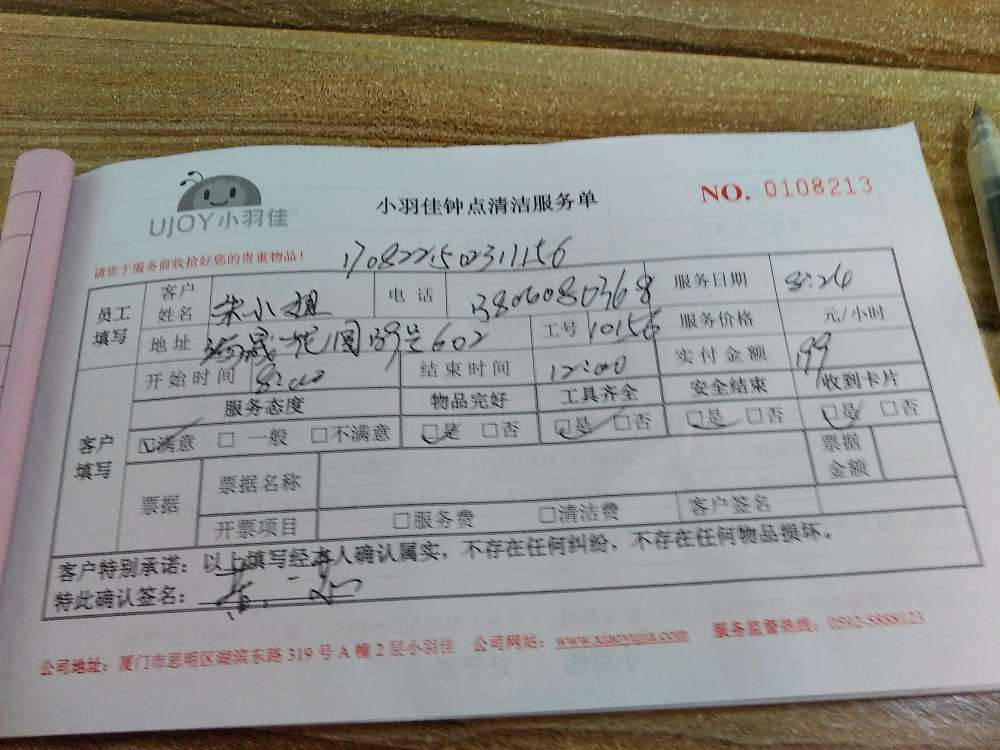 UJOY小羽佳
小羽佳钟点清洁服务单
NO. 0108213
请您于服务前收拾好您的贵重物品！
170822150231156
员工填写 客户姓名 朱小姐 电话 服务日期 8:26
地址 花园 602 工号 10156 服务价格 元/小时
开始时间 8:00 结束时间 12:00 实付金额 199
服务态度 物品完好 工具齐全 安全结束 收到卡片
客户填写 ☑满意 □一般 □不满意 ☑是 □否 ☑是 □否 ☑是 □否 ☑是 □否
票据 票据名称 票据金额
开票项目 □服务费 □清洁费 客户签名
客户特别承诺：以上填写经本人确认属实，不存在任何纠纷，不存在任何物品损坏。
特此确认签名：
公司地址：厦门市思明区湖滨东路 319 号 A 幢 2 层小羽佳 公司网站：www.xiaoyujia.com 服务监督热线：0592-5888123